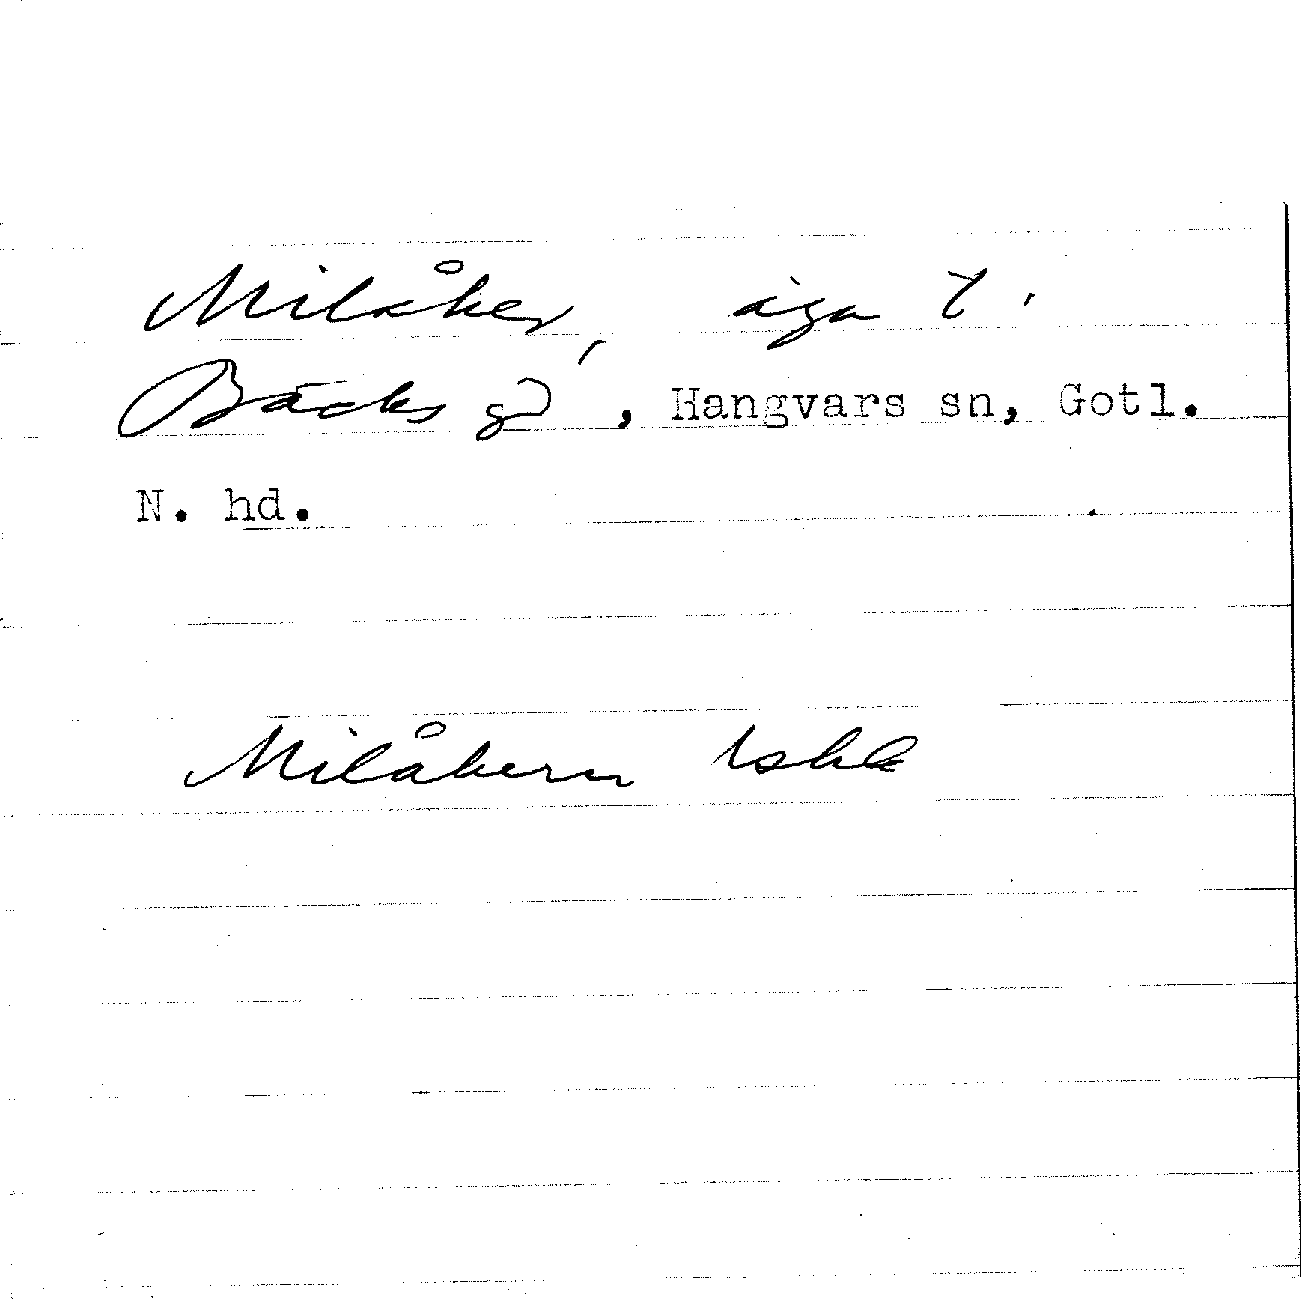 Milåker, äga t.
Bäcks gd, Hangvars sn, Gotl.
N. hd.
Milåkern